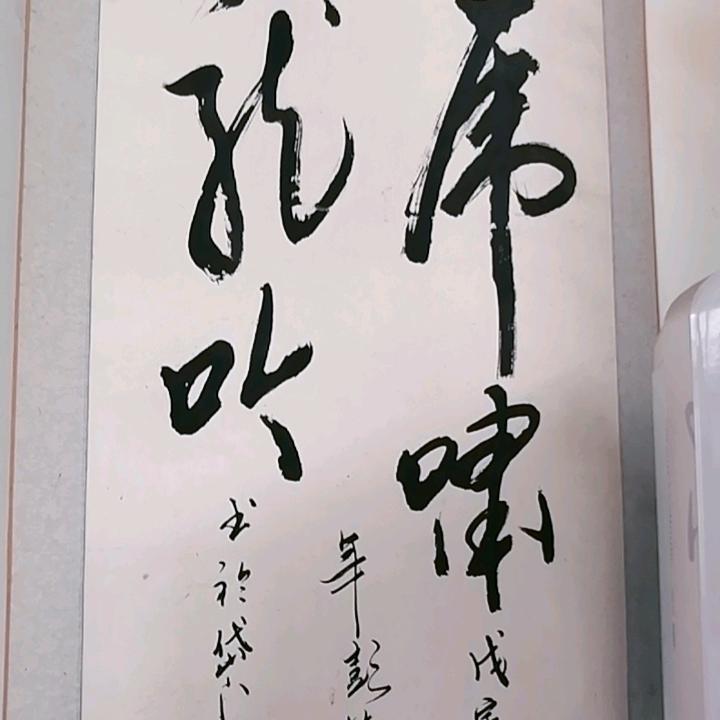 虎啸
龙吟
戊寅
年彭
书于岱